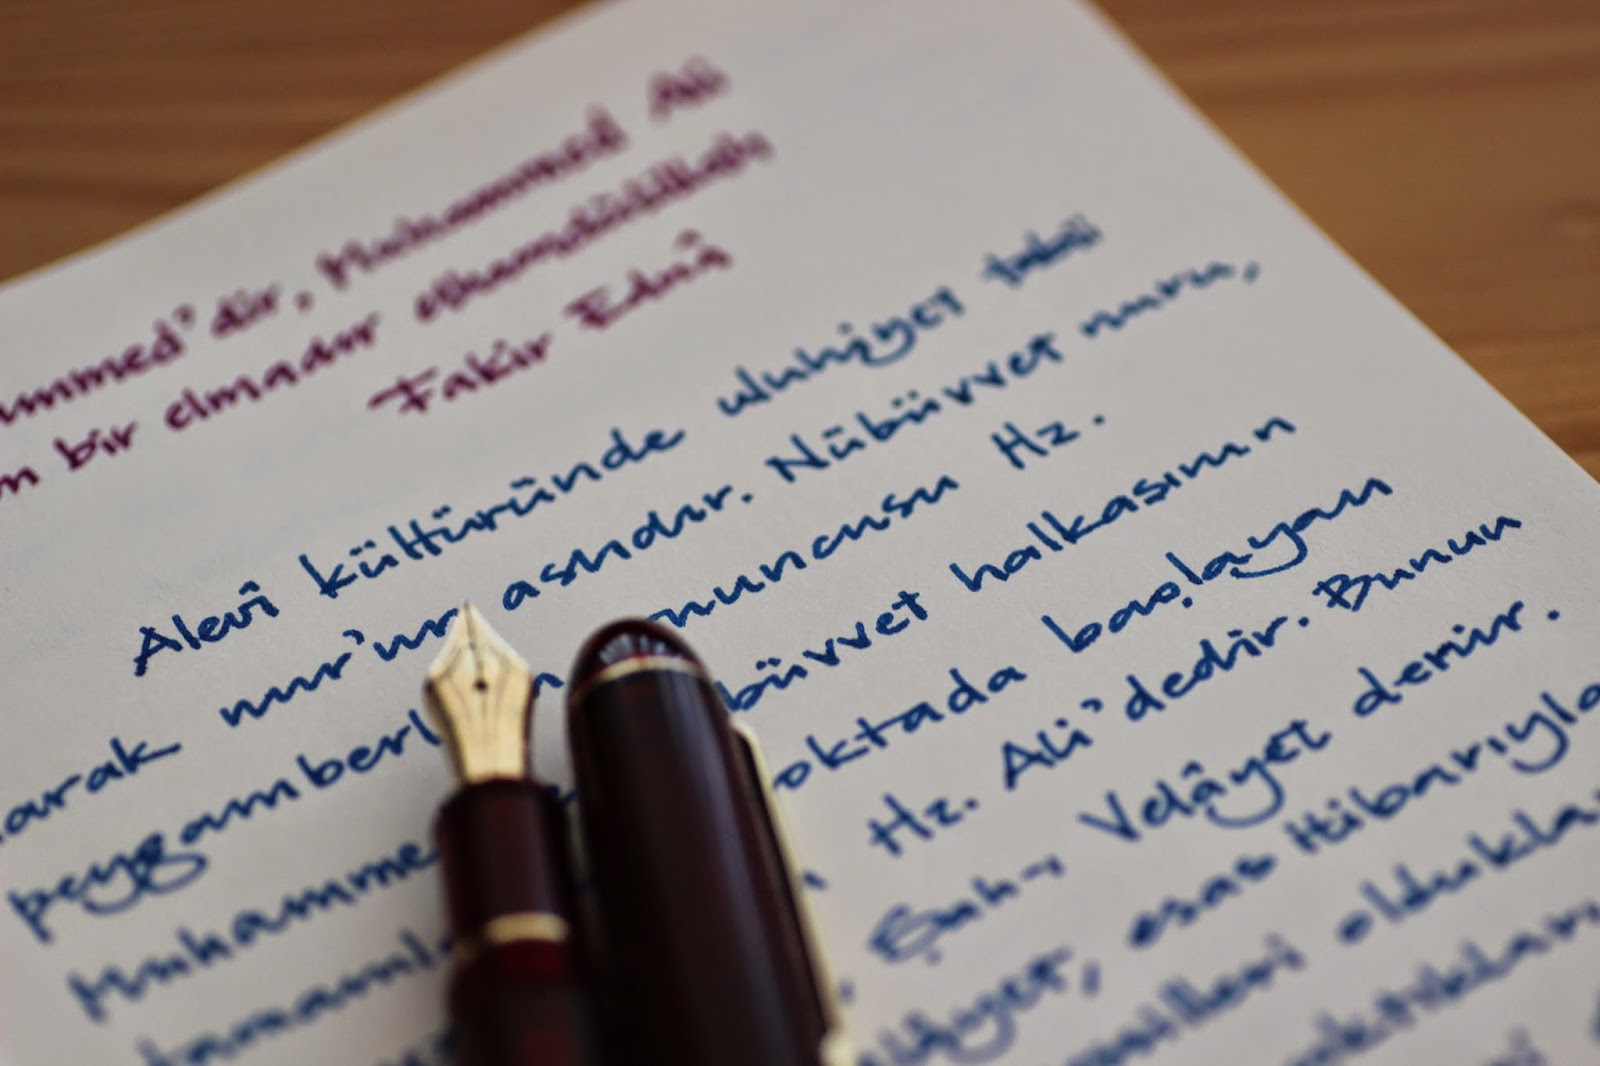 mmed'dir, Muhammed Ali
bir elmadır elhamdülillah
Fakir Ednâ
Alevî kültüründe uluhiyet
arak nur'un aslıdır. Nübüvvet nuru,
peygamberl nuncusu Hz.
Muhamme büvvet halkasının
tamamla oktada başlayan
Hz. Ali'dedir. Bunun
Şah-ı Velâyet denir.
esas itibarıyla
oldukla